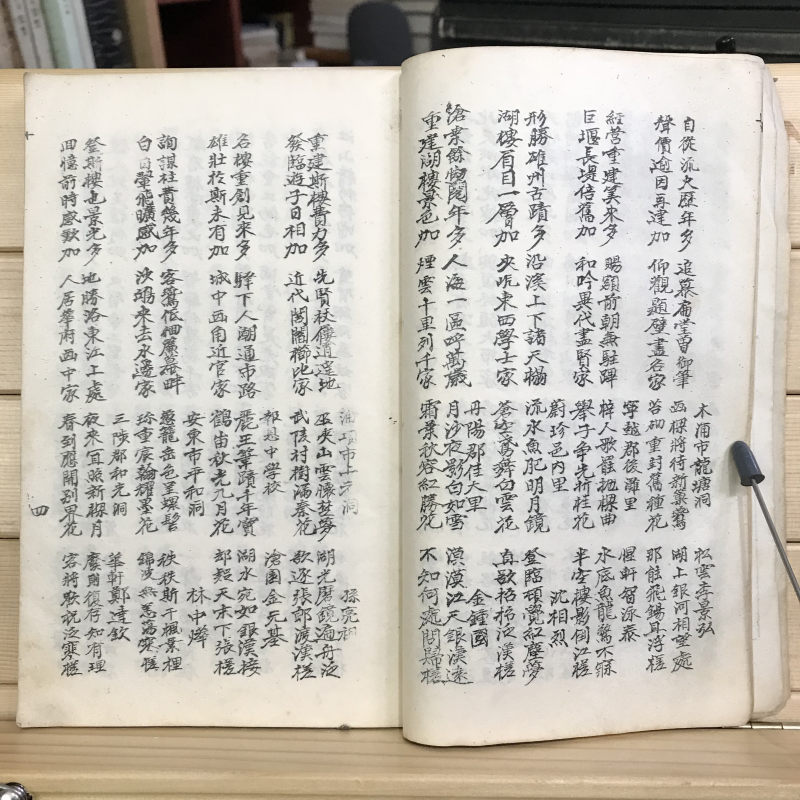 木浦市龍塘洞 松雲李景弘
自從流火歷年多 追慕扁堂曾御筆 画樑將待新巢鷰 湖上銀河相望處
聲價逾因再建加 仰觀題壁盡名家 苔砌重封舊種花 那能飛錫耳浮槎
寧越郡後灘里 惺軒智泳泰
經營重建筭來多 賜顧前朝無駐蹕 梓人歌罷抛樑曲 水底魚龍驚不寐
巨堰長堤倍舊加 和吟異代盡賢家 學子爭先折桂花 半空樓影倒江槎
蔚珍邑內里 沈相烈
形勝雄州古蹟多 沿溪上下諸天榻 流水魚肥明月鏡 登臨頓覺紅塵夢
湖樓有目一層加 東西學士家 蒼空鶯舞白雲花 直欲招招泛漢槎
丹陽郡佳大里 金鍾國
滄桑餘物閱年多 人海一區呼萬歲 月沙夜影白如雪 漠漠江天銀漢遠
重建湖樓景色加 煙雲十里列千家 霜葉秋容紅勝花 不知何處問歸槎
浦項市上元洞 孫亮祖
重建斯樓費力多 先賢杖逍遙地 巫夾山雲懷楚夢 湖光磨鏡遍舟泛
發臨遊子日相加 近代閭閻櫛比家 武陵村樹滿春花 歌逐張郎渡漢槎
報恩中學校 滄園金元基
名樓重創見來多 驛下人湖通市路 麗王筆蹟千年寶 湖水宛如銀漢接
雄壯於斯未有加 城中西角近官家 鶴笛秋光九月花 却疑天末下張槎
安東市平和洞 林中燁
詢謀壯費幾年多 客鷰低佪麗幕畔 葱蘢岳色呈螺髻 秩秩斯干楓景裡
白日翬飛曠感加 沙鴻來去水邊家 珎重宸翰耀墨花 錦波無恙蕩寒槎
三陟郡和光洞 華軒鄭達欽
登斯樓也景光多 地勝洛東江上處 夜來宜照新樑月 慶則復存知有理
回憶前時感歎加 人居華府西中家 春到應開別界花 客將祝泛寒槎
四